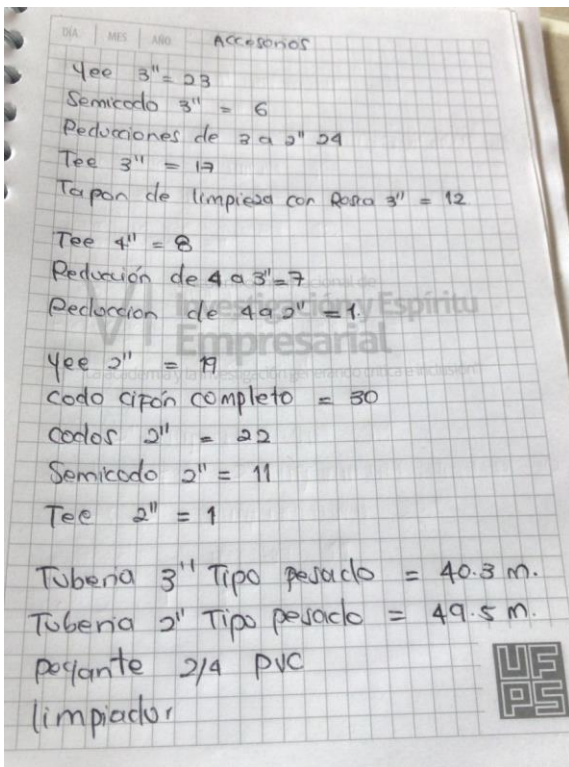 DIA MES AÑO
Accesorios
Yee 3" = 23
Semicodo 3" = 6
Reducciones de 3 a 2" 24
Tee 3" = 17
Tapon de limpieza con Rosca 3" = 12
Tee 4" = 8
Reducción de 4 a 3" = 7
Reduccion de 4 a 2" = 1.
VI
Investigación y Espíritu
Empresarial
Yee 2" = 19
codo cifón completo = 30
codos 2" = 22
Semicodo 2" = 11
Tee 2" = 1
Tuberia 3" Tipo pesado = 40.3 m.
Tuberia 2" Tipo pesado = 49.5 m.
pegante 2/4 PVC
limpiador
UF
PS